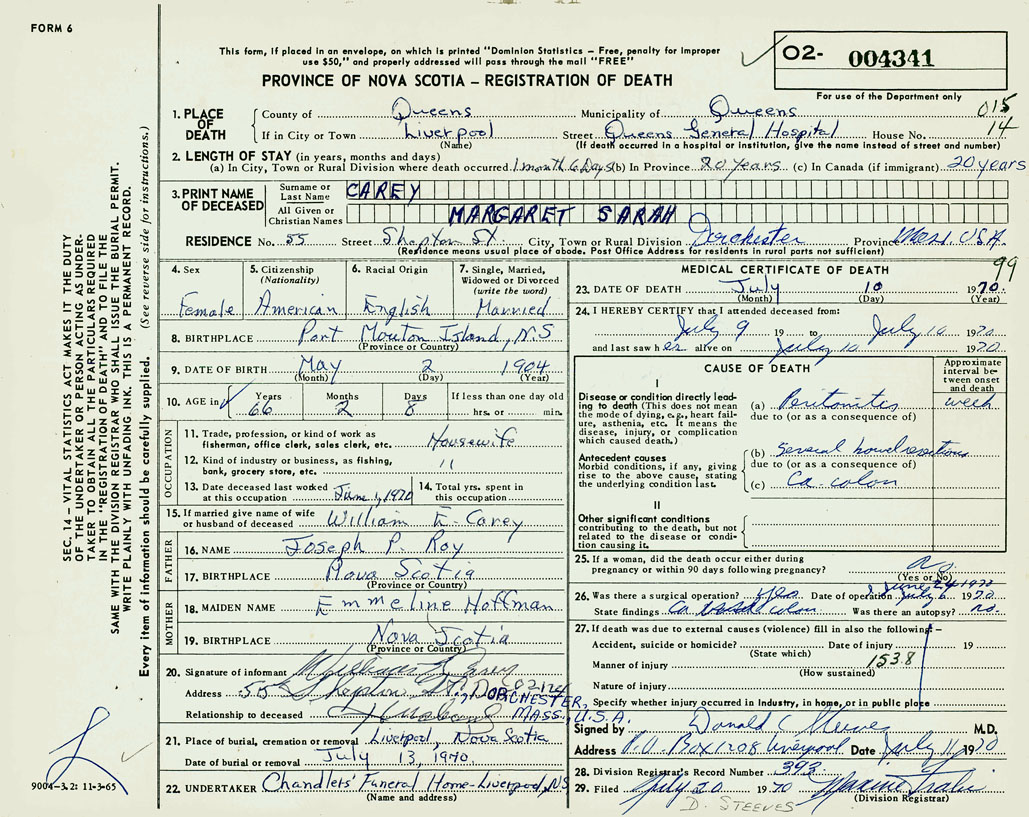 FORM 6
This form, if placed in an envelope, on which is printed "Dominion Statistics – Free, penalty for improper
use $50," and properly addressed will pass through the mail "FREE"
PROVINCE OF NOVA SCOTIA – REGISTRATION OF DEATH
O2- 004341
For use of the Department only
015
14
1. PLACE OF DEATH
County of Queens Municipality of Queens
If in City or Town Liverpool Street Queens General Hospital House No.
(Name) (If death occurred in a hospital or institution, give the name instead of street and number)
2. LENGTH OF STAY (in years, months and days)
(a) In City, Town or Rural Division where death occurred 1 month 6 Days (b) In Province 20 years (c) In Canada (if immigrant) 20 years
3. PRINT NAME OF DECEASED
Surname or Last Name CAREY
All Given or Christian Names MARGARET SARAH
RESIDENCE No. 55 Street Shepton St. City, Town or Rural Division Dorchester Province Mass. USA.
(Residence means usual place of abode. Post Office Address for residents in rural parts not sufficient)
99
4. Sex Female
5. Citizenship (Nationality) American
6. Racial Origin English
7. Single, Married, Widowed or Divorced (write the word) Married
8. BIRTHPLACE Port Mouton Island, N.S
(Province or Country)
9. DATE OF BIRTH May 2 1904
(Month) (Day) (Year)
10. AGE in Years 66 Months 2 Days 8 If less than one day old hrs. or min.
OCCUPATION
11. Trade, profession, or kind of work as fisherman, office clerk, sales clerk, etc. Housewife
12. Kind of industry or business, as fishing, bank, grocery store, etc. "
13. Date deceased last worked at this occupation June 1, 1970
14. Total yrs. spent in this occupation
15. If married give name of wife or husband of deceased William E. Carey
FATHER
16. NAME Joseph P. Roy
17. BIRTHPLACE Nova Scotia
(Province or Country)
MOTHER
18. MAIDEN NAME Emmeline Hoffman
19. BIRTHPLACE Nova Scotia
(Province or Country)
20. Signature of informant William E. Carey
Address 55 Shepton St., DORCHESTER, 02124
Relationship to deceased Husband MASS, U.S.A.
21. Place of burial, cremation or removal Liverpool, Nova Scotia
Date of burial or removal July 13, 1970.
22. UNDERTAKER Chandlers' Funeral Home-Liverpool, NS
(Name and address)
MEDICAL CERTIFICATE OF DEATH
23. DATE OF DEATH July 10 1970.
(Month) (Day) (Year)
24. I HEREBY CERTIFY that I attended deceased from:
July 9 19 to July 10 1970
and last saw her alive on July 10 1970
CAUSE OF DEATH
Approximate interval between onset and death
I
Disease or condition directly leading to death (This does not mean the mode of dying, e.g., heart failure, asthenia, etc. It means the disease, injury, or complication which caused death.)
(a) Peritonitis week
due to (or as a consequence of)
Antecedent causes
Morbid conditions, if any, giving rise to the above cause, stating the underlying condition last.
(b) Several bowel resections
due to (or as a consequence of)
(c) Ca. colon
II
Other significant conditions
contributing to the death, but not related to the disease or condition causing it.
25. If a woman, did the death occur either during pregnancy or within 90 days following pregnancy? no.
(Yes or No)
June 24 1970
26. Was there a surgical operation? yes Date of operation July 6 1970.
State findings Ca colon Was there an autopsy? no.
27. If death was due to external causes (violence) fill in also the following:–
Accident, suicide or homicide? Date of injury 19
(State which)
Manner of injury 153.8
(How sustained)
Nature of injury
Specify whether injury occurred in Industry, in home, or in public place
Signed by Donald C Steeves M.D.
Address P.O. Box 1208 Liverpool Date July 11 1970
28. Division Registrar's Record Number 393
29. Filed July 20 1970
(Division Registrar)
D. STEEVES
SEC. 14 – VITAL STATISTICS ACT MAKES IT THE DUTY
OF THE UNDERTAKER OR PERSON ACTING AS UNDER-
TAKER TO OBTAIN ALL THE PARTICULARS REQUIRED
IN THE "REGISTRATION OF DEATH" AND TO FILE THE
SAME WITH THE DIVISION REGISTRAR WHO SHALL ISSUE THE BURIAL PERMIT.
WRITE PLAINLY WITH UNFADING INK. THIS IS A PERMANENT RECORD.
Every item of information should be carefully supplied. (See reverse side for instructions.)
9004-3.2: 11-3-65